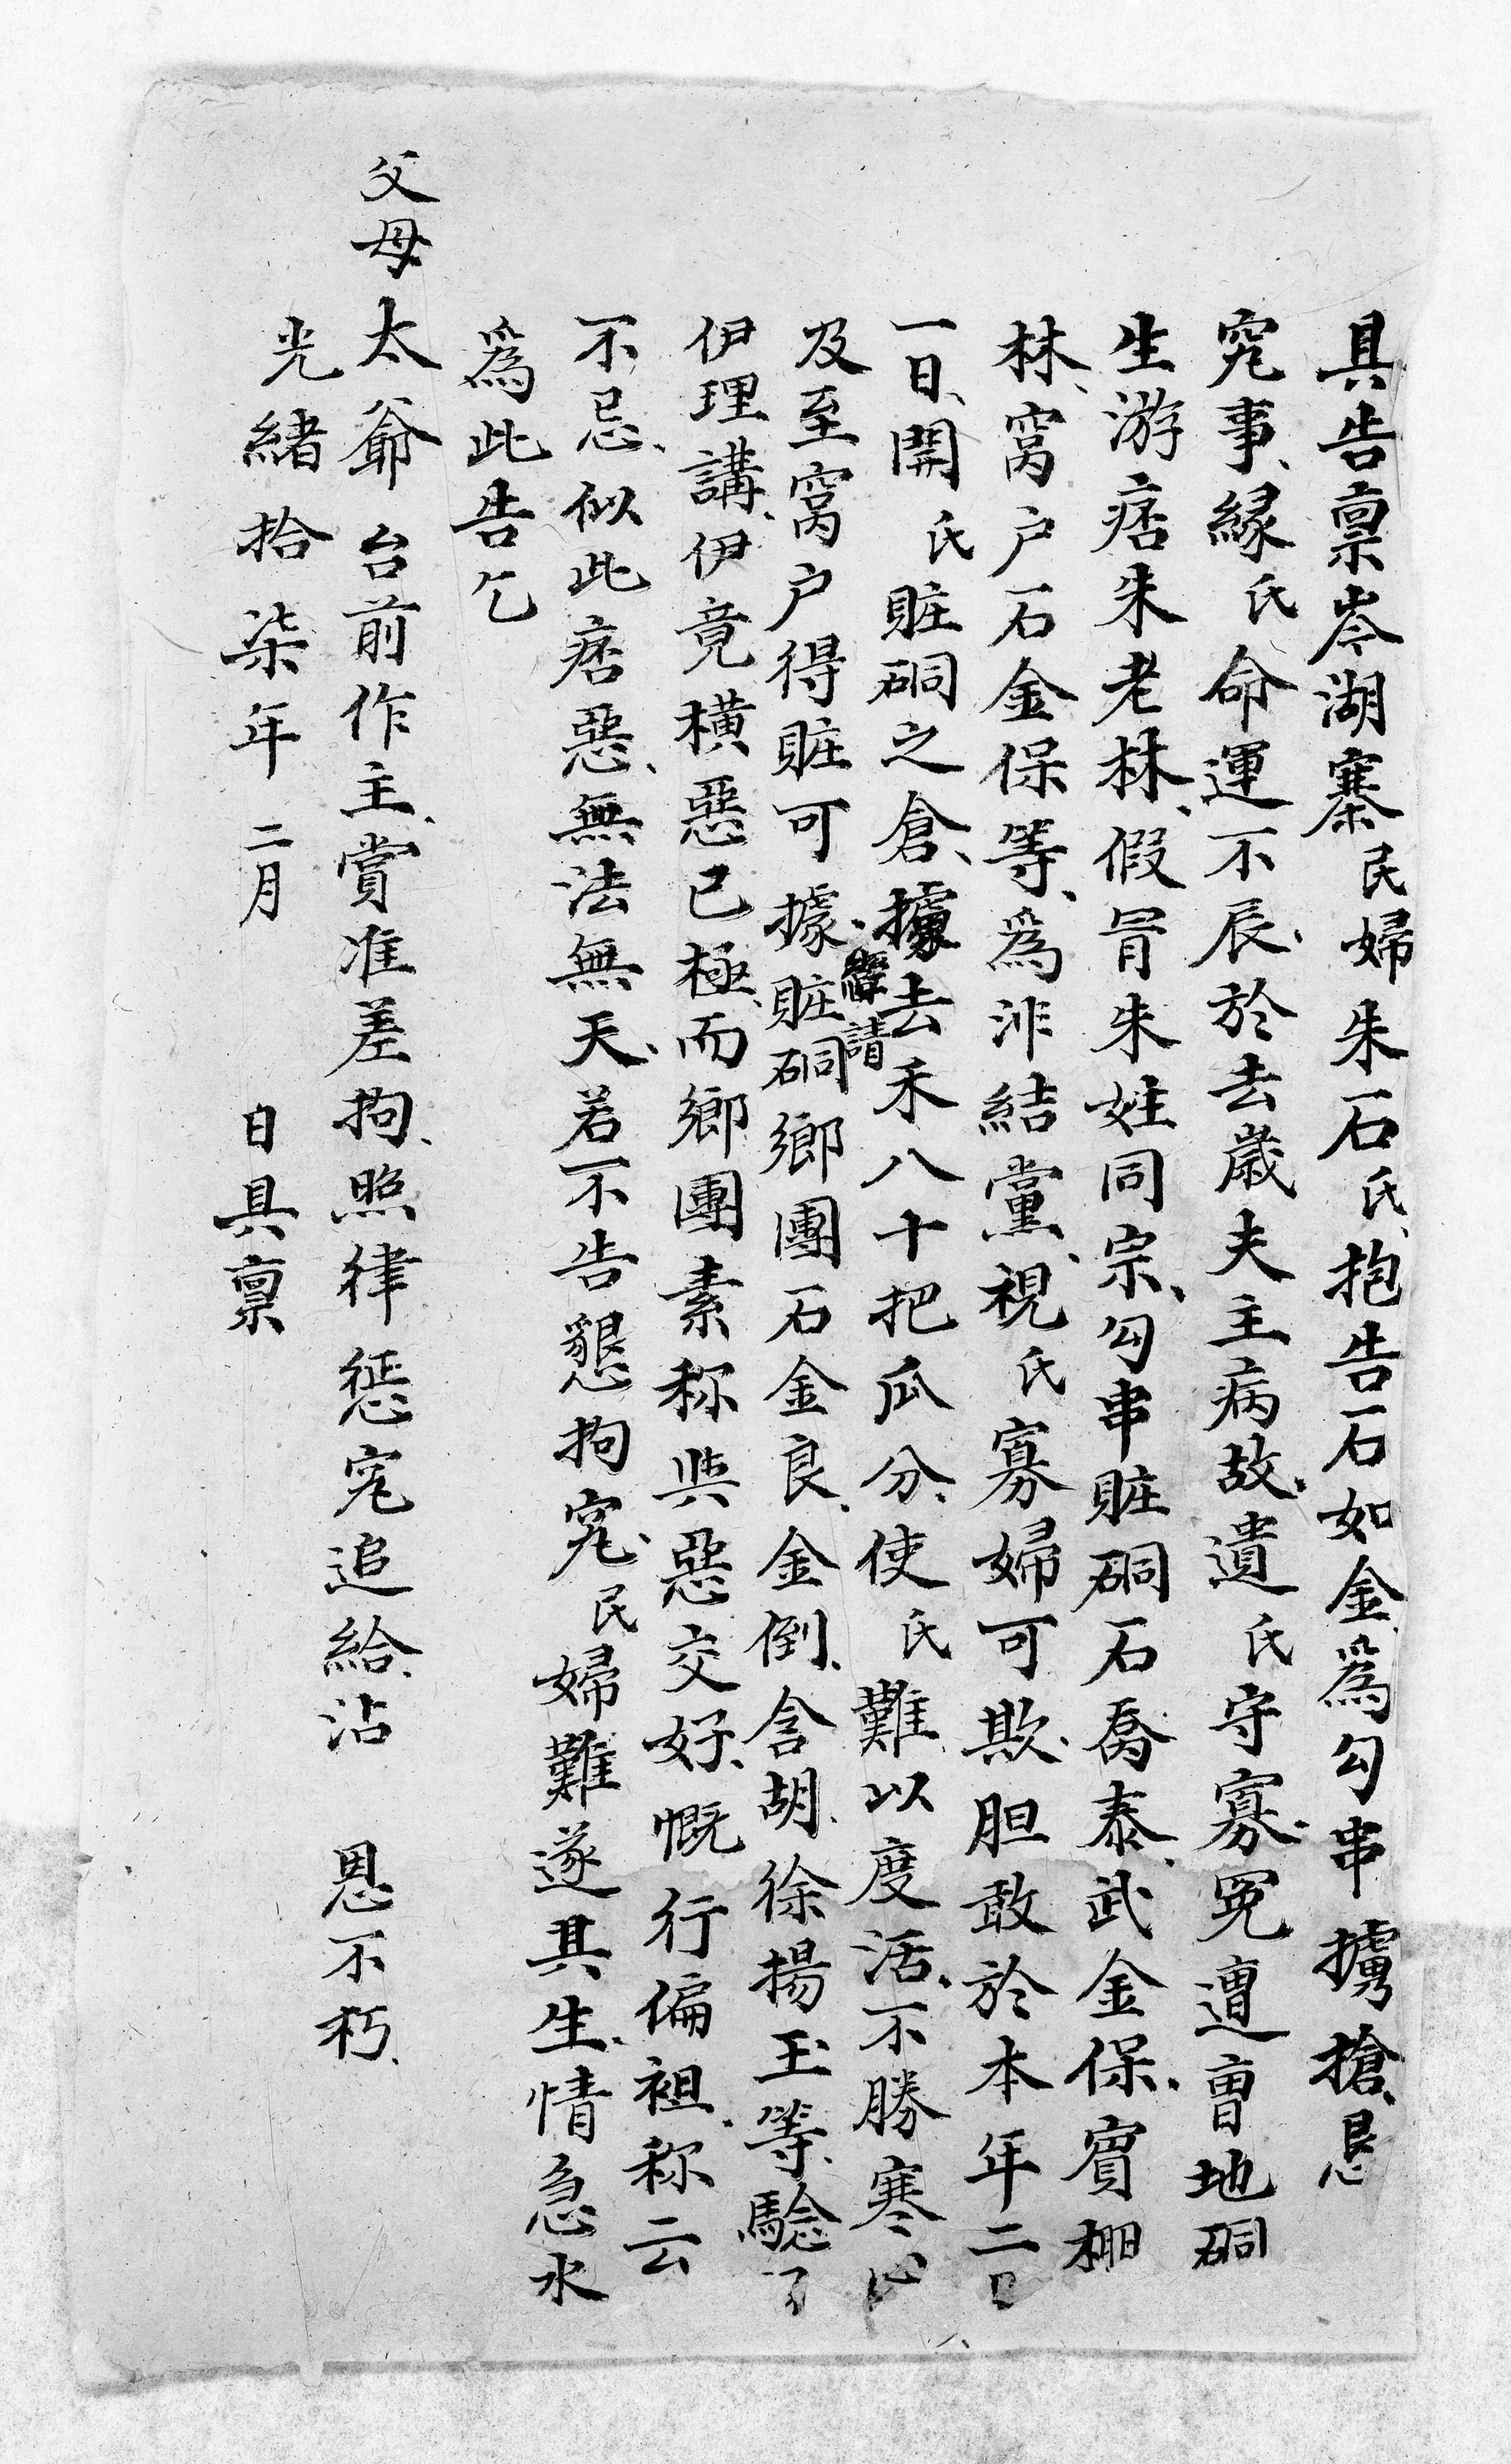 具告禀岑湖寨民婦朱石氏、抱告石如金、爲勾串擄搶、懇
究事、緣氏命運不辰、於去歲夫主病故、遺氏守寡、冤遭曺地硐
生游痞朱老林、假冐朱姓同宗、勾串賍硐石喬泰、武金保、賓棚
林、窩户石金保等、爲汼結黨、視氏寡婦可欺、胆敢於本年二
一日、開氏賍硐之倉、擄去禾八十把瓜分、使氏難以度活、不勝寒心
及至窩户得賍可據、經請賍硐鄉團石金良、金倒、含胡、徐揚玉等、驗了
伊理講、伊竟橫惡已極、而鄉團素称與惡交好、慨行偏袒、称云
不忌、似此痞惡、無法無天、若不告懇拘究、民婦難遂其生、情急水
爲此告乞
父母太爺台前作主、賞准差拘、照律懲究追給、沾恩不朽、
光緒拾柒年二月日具禀